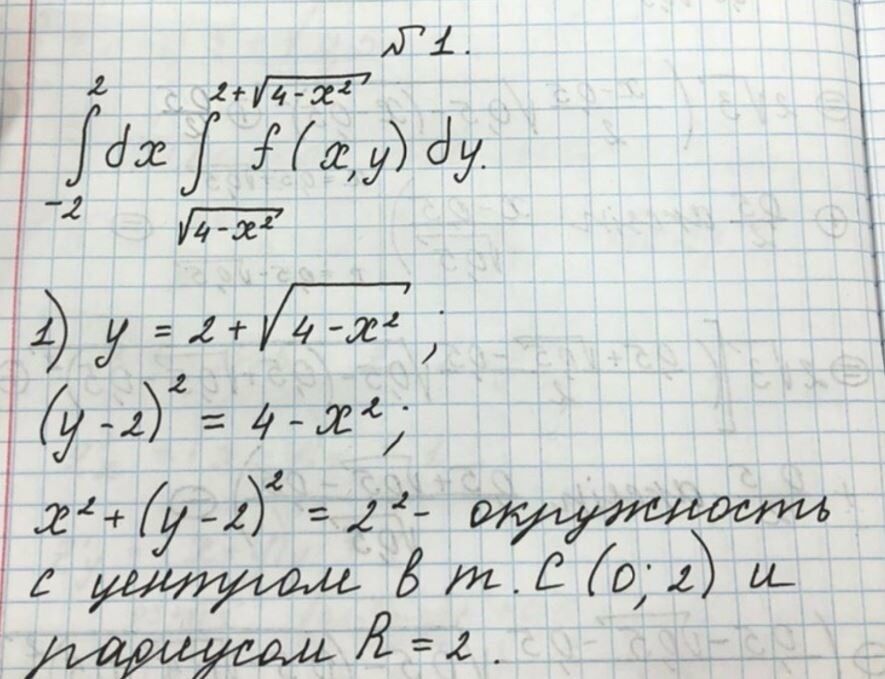 № 1.
∫_{-2}^{2} dx ∫_{√(4-x²)}^{2+√(4-x²)} f(x,y) dy.
1) y = 2 + √(4-x²) ;
(y-2)² = 4 - x² ;
x² + (y-2)² = 2² - окружность
с центром в т. С (0; 2) и
радиусом R = 2.